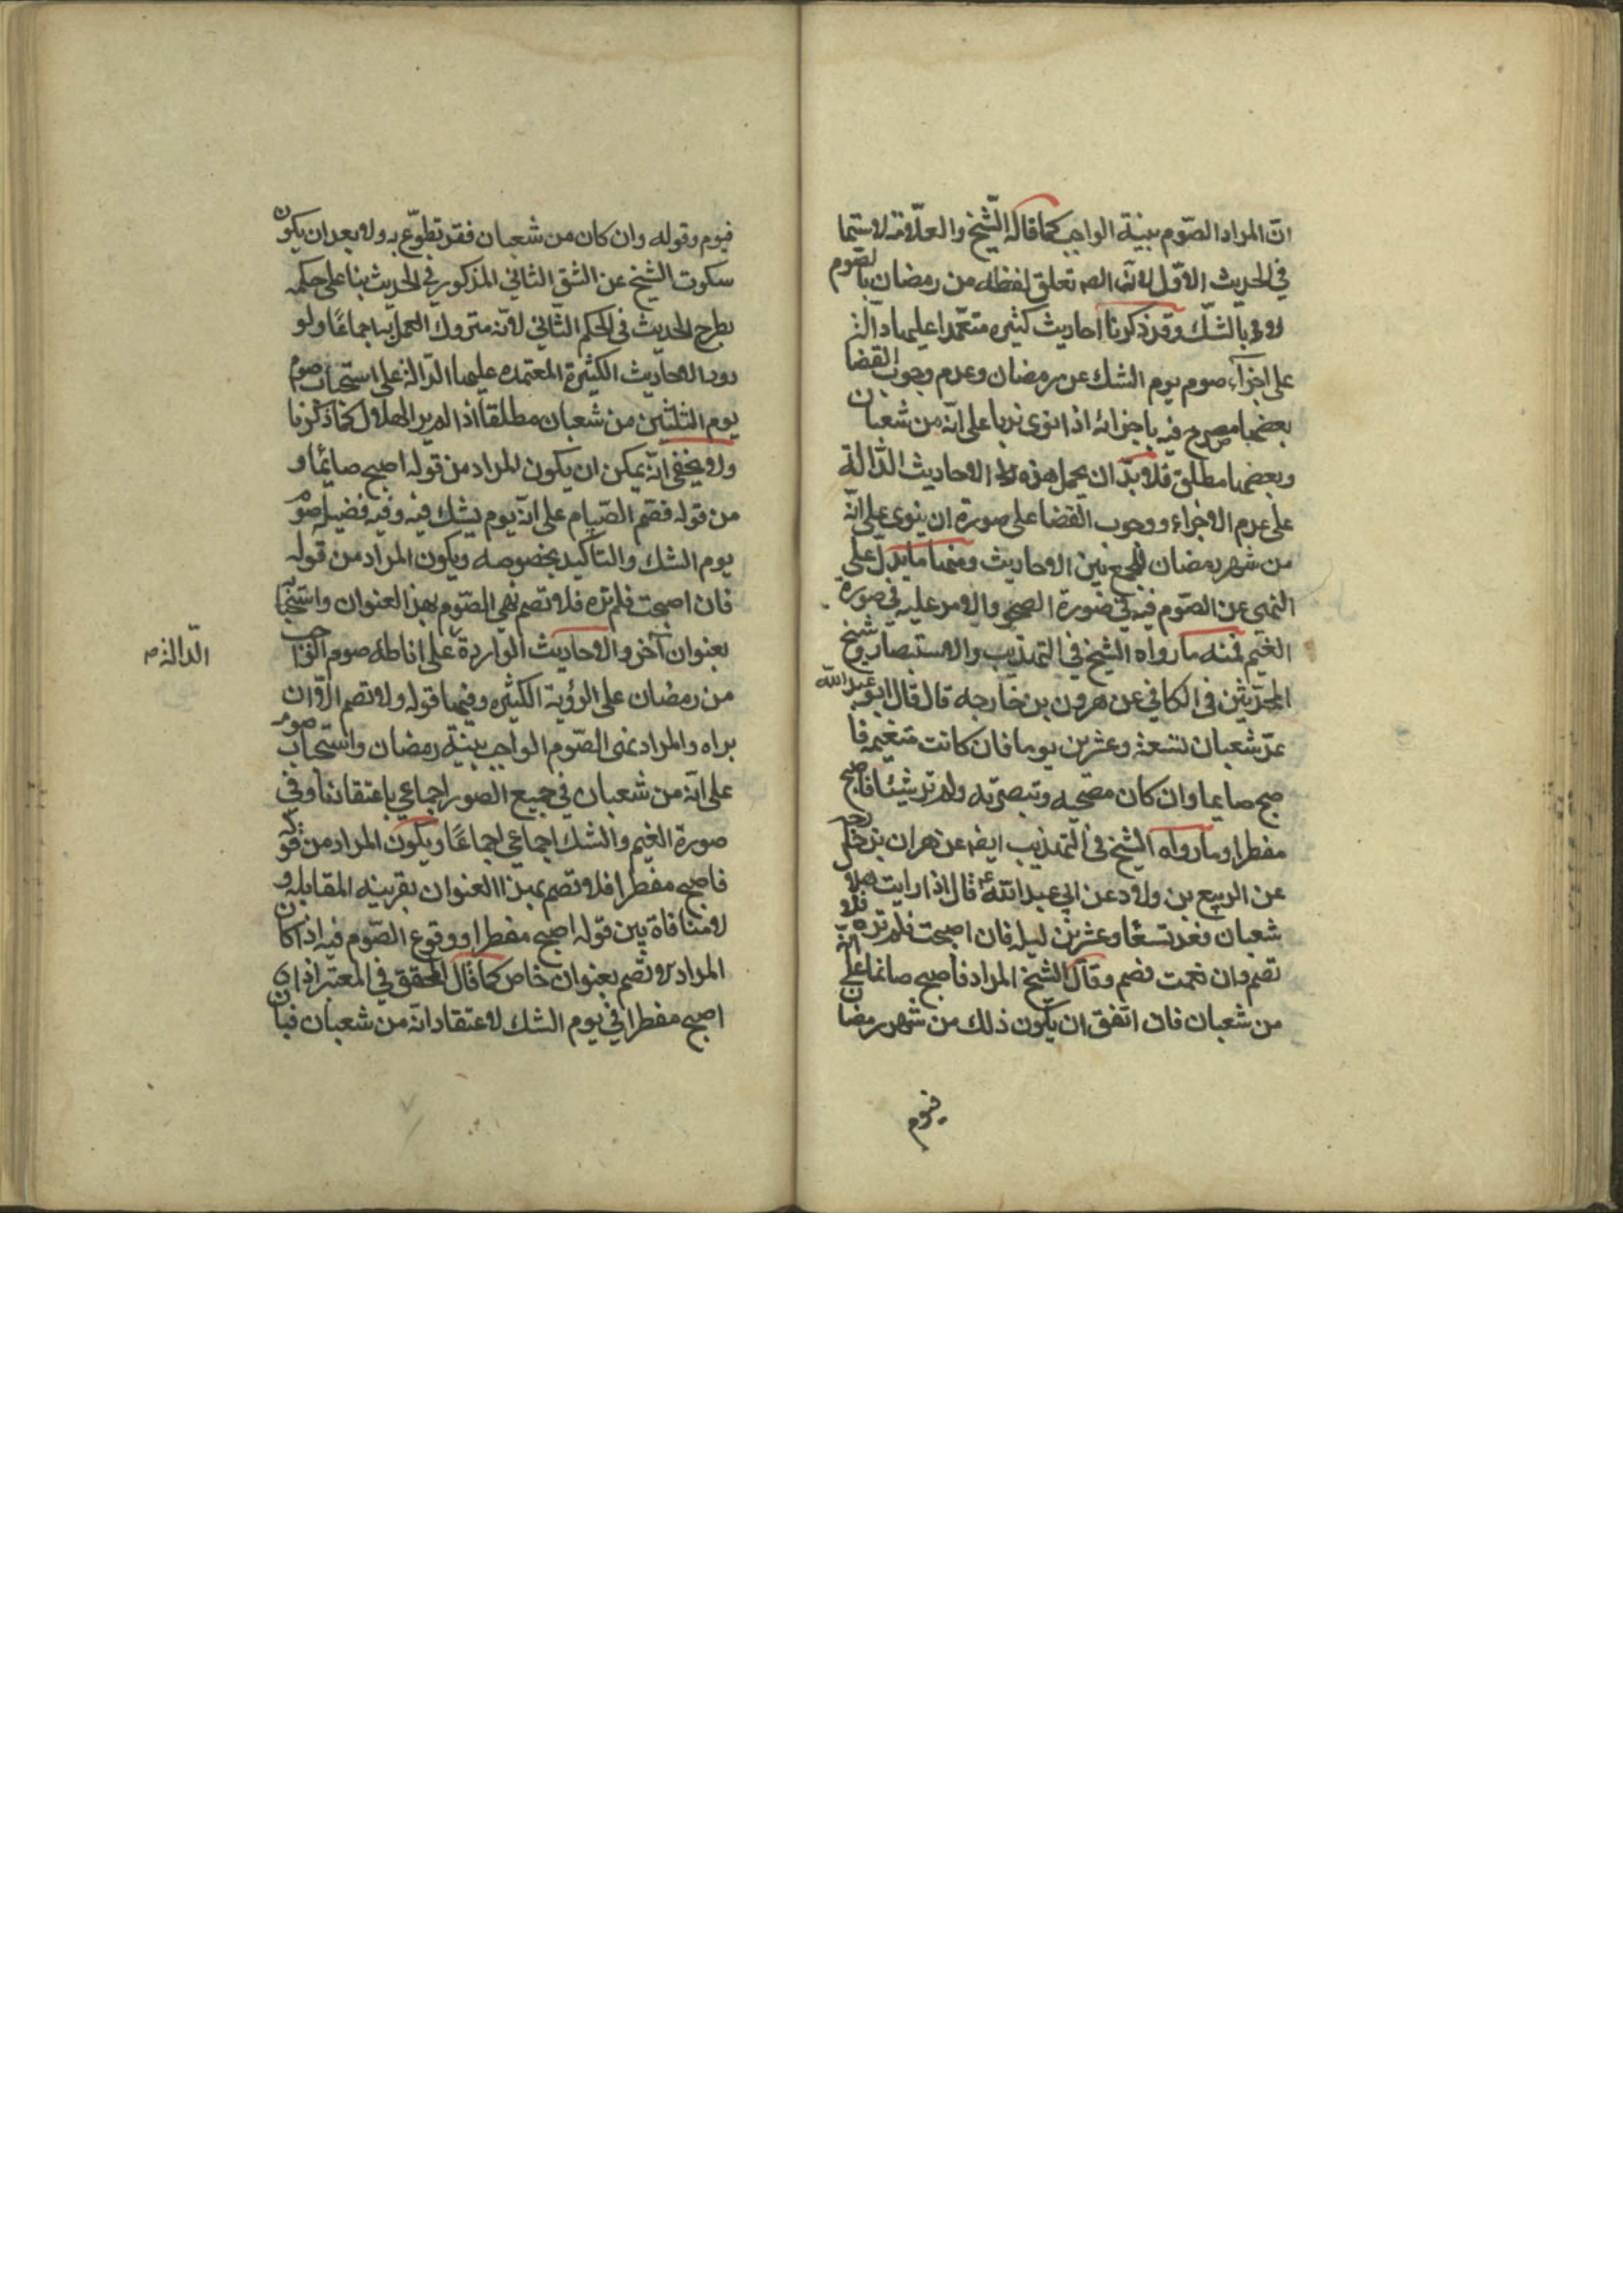 انّ المراد الصّوم بنية الواجب كما قاله الشّيخ والعلّامة لا سيّما
في الحديث الاوّل لانّ الصـ تعلق لفظه من رمضان بالصّوم
لا و بالشّك وقد ذكرنا احاديث كثيره متعمّدا عليها دآلّة
على اجزآء صوم يوم الشك عن رمضان وعدم وجوب القضا
بعضها مصرح فيه باجزائه اذا نوى ندبا على انّه من شعبان
وبعضها مطلق فلا بدّ ان يحمل هذه الاحاديث الدّالة
على عدم الاجزاء ووجوب القضا على صورة ان ينوى على انّه
من شهر رمضان للجمع بين الاحاديث ومنها ما يدلّ على
النهى عن الصّوم فيه في صورة الصحو والامر عليه في صورة
الغيم فمنه ما رواه الشيخ في التهذيب والاستبصار وشيخ
المحدّثين فى الكافي عن هرون بن خارجه قال قال ابو عبد الله
عدّ شعبان تسعة وعشرين يوما فان كانت متغيمه فا
صبح صايما وان كان مصحيه وتبصرته ولم تر شيئا فاصبح
مفطرا وما رواه الشيخ فى التهذيب ايضـ عن هران بن خارجه
عن الربيع بن ولاد عن ابي عبد الله ع قال اذا رايت هلال
شعبان فعد تسعًا وعشرين ليله فان اصبحت فلم تره فلا
تصم وان نعمت فصم وقال الشيخ المراد فاصبح صائما على انّه
من شعبان فان اتفق ان يكون ذلك من شهر رمضان
فيوم
فيوم وقوله وان كان من شعبان فقد تطوّع به ولا بعد ان يكون
سكوت الشيخ عن الشق الثاني المذكور في الحديث بنا على حكمه
بطرح الحديث فى الحكم الثانى لانّه متروك العمل به اجماعًا ولو
رود الاحاديث الكثيرة المعتمده عليها الدّالة على استحباب صوم
يوم الثلثين من شعبان مطلقا اذا لم ير الهلال كما ذكرنا
ولا يخفى انّه يمكن ان يكون المراد من قوله اصبح صائمًا و
من قوله فصم الصّيام على انّه يوم يشك فيه وفيه فضيله صوم
يوم الشك والتاكيد بخصوصه ويكون المراد من قوله
فان اصبحت فلم تره فلا تصم نهي الصّوم بهذا العنوان واستحبا
بعنوان آخر والاحاديث الواردة على اناطه صوم الواجب
الدّالة صـ
من رمضان على الرؤية الكثيره وفيها قوله ولا تصم الّا ان
يراه والمراد نهى الصّوم الواجب بنية رمضان واستحباب صوم
على انّه من شعبان في جميع الصور اجماعي باعتقادنا وفي
صورة الغيم والشك اجماعي اجماعًا ويكون المراد من قوله
فاصبح مفطرا فلا تصم بهذا العنوان بقرينه المقابله و
لا منافاة بين قوله اصبح مفطرا ووقوع الصّوم فيه اذا كان
المراد لا تصم بعنوان خاص كما قال المحقق في المعتبر اذا
اصبح مفطرا في يوم الشك لاعتقاد انّه من شعبان فبان